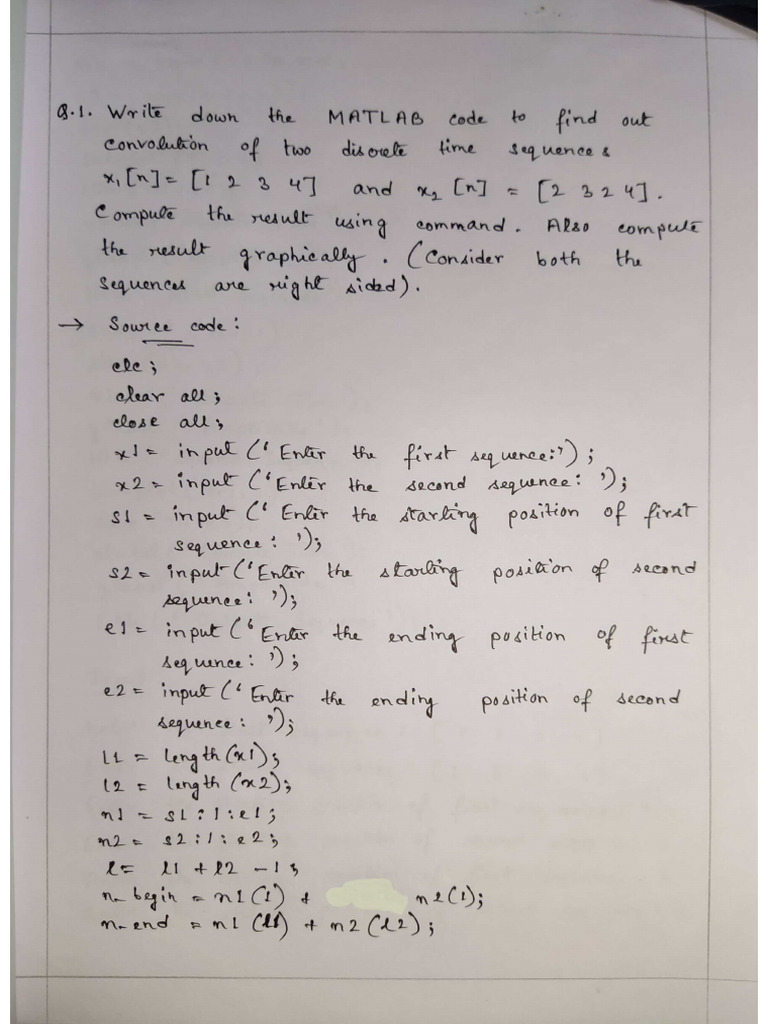 Q.1. Write down the MATLAB code to find out
convolution of two discrete time sequences
x₁[n] = [1 2 3 4] and x₂[n] = [2 3 2 4].
Compute the result using command. Also compute
the result graphically. (Consider both the
sequences are right sided).
→ Source code:
clc;
clear all;
close all;
x1 = input (‘Enter the first sequence:’);
x2 = input (‘Enter the second sequence: ’);
s1 = input (‘Enter the starting position of first
sequence: ’);
s2 = input (‘Enter the starting position of second
sequence: ’);
e1 = input (‘Enter the ending position of first
sequence: ’);
e2 = input (‘Enter the ending position of second
sequence: ’);
l1 = length (x1);
l2 = length (x2);
n1 = s1:1:e1;
n2 = s2:1:e2;
l = l1 + l2 - 1;
n_begin = n1(1) + n2(1);
n_end = n1(l1) + n2(l2);